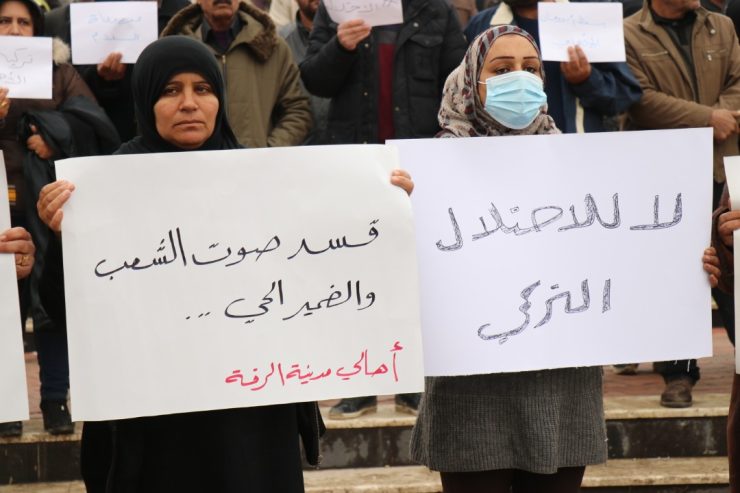 قسد صوت الشعب
والضمير الحي ...
أهالي مدينة الرقة
لا للاحتلال
التركي